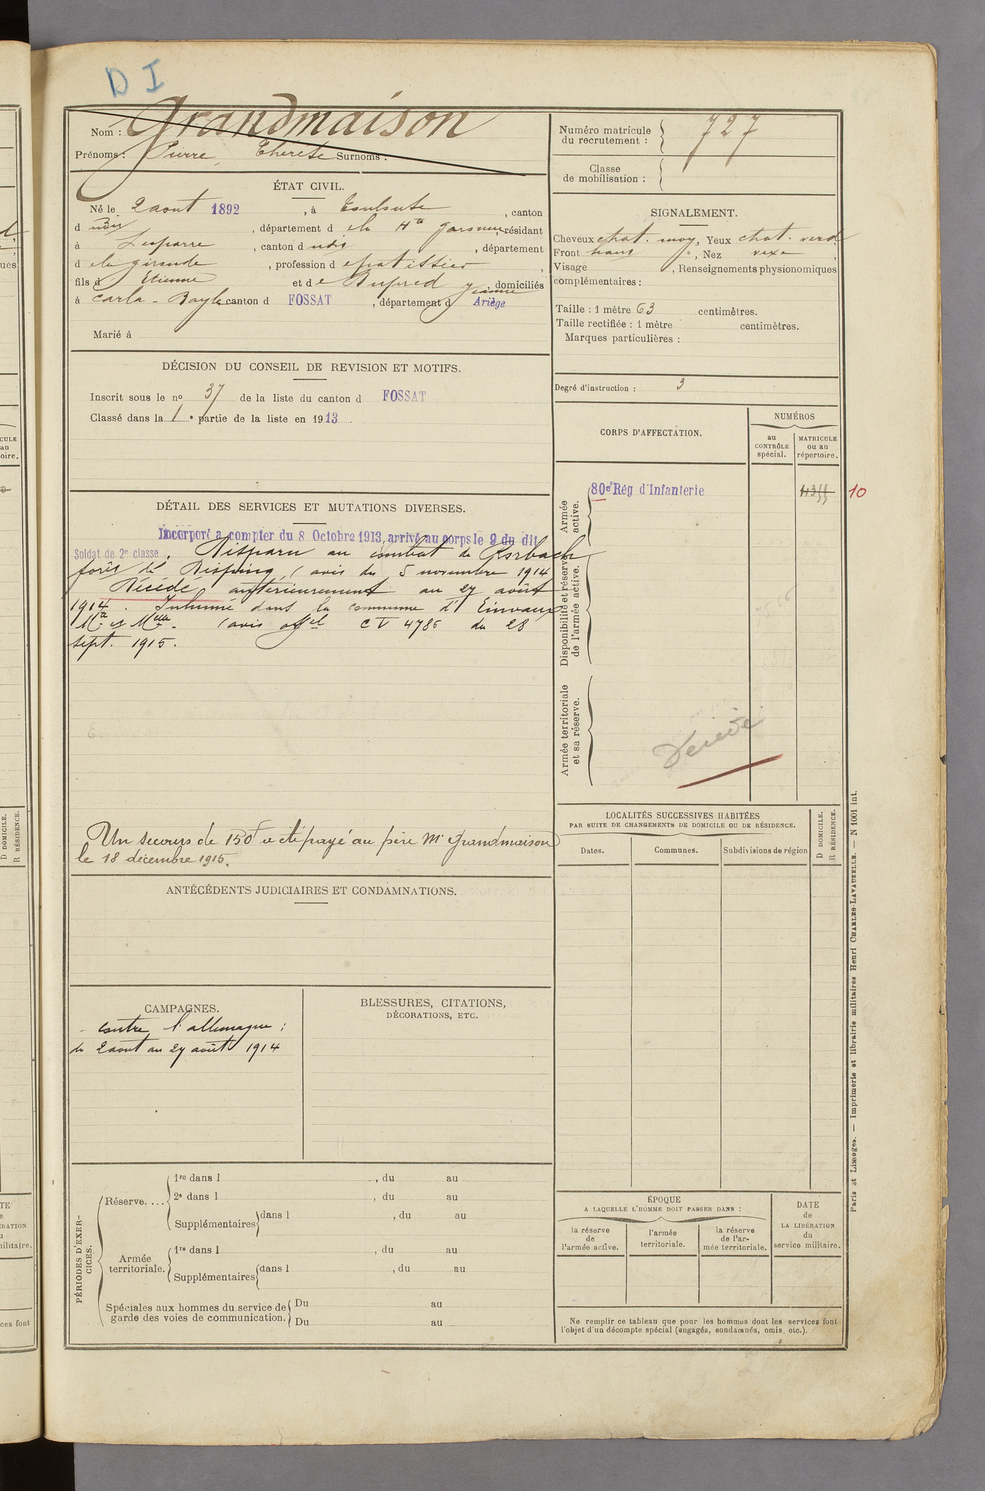 D I
Nom : Grandmaison
Prénoms : Pierre, Surnoms :
Numéro matricule du recrutement : 727
Classe de mobilisation :
ÉTAT CIVIL.
Né le 2 aout 1892, à Toulouse, canton
d udit, département d e la Hte Garonne, résidant
à Lesparre, canton d udit, département
d e la gironde, profession d e patissier,
fils d Etienne et de Dupred Jeanne, domiciliés
à Carla-Bayle canton d FOSSAT, département d Ariège
Marié à
SIGNALEMENT.
Cheveux chat. moy, Yeux chat. verd
Front , Nez vexe
Visage , Renseignements physionomiques
complémentaires :
Taille : 1 mètre 63 centimètres.
Taille rectifiée : 1 mètre centimètres.
Marques particulières :
Degré d'instruction : 3
DÉCISION DU CONSEIL DE REVISION ET MOTIFS.
Inscrit sous le no 37 de la liste du canton d FOSSAT
Classé dans la 1e partie de la liste en 1913.
CORPS D'AFFECTATION.
NUMÉROS
au CONTRÔLE spécial.
MATRICULE ou au répertoire.
Armée active.
80e Rég d'Infanterie
10
Disponibilité et réserve de l'armée active.
Armée territoriale et sa réserve.
Décédé
DÉTAIL DES SERVICES ET MUTATIONS DIVERSES.
Incorporé a compter du 8 Octobre 1913, arrivé au corps le 9 du dit
Soldat de 2e classe. Disparu au combat de
forêt de Bisping (avis du 5 novembre 1914
Décédé antérieurement au 27 août
1914. Inhumé dans la commune d'Einvaux
Mthe et Mlle. (avis offel CV 4785 du 28
sept. 1915.
Un secours de 150f a été payé au père Mr Grandmaison
le 18 décembre 1915.
LOCALITÉS SUCCESSIVES HABITÉES
PAR SUITE DE CHANGEMENTS DE DOMICILE OU DE RÉSIDENCE.
Dates. Communes. Subdivisions de région
D DOMICILE.
R RÉSIDENCE.
ANTÉCÉDENTS JUDICIAIRES ET CONDAMNATIONS.
CAMPAGNES.
- contre l'allemagne :
du 2 aout au 27 août 1914
BLESSURES, CITATIONS,
DÉCORATIONS, ETC.
PÉRIODES D'EXERCICES.
Réserve....
1re dans l , du au
2e dans l , du au
Supplémentaires dans l , du au
Armée territoriale.
1re dans l , du au
Supplémentaires dans l , du au
Spéciales aux hommes du service de Du au
garde des voies de communication. Du au
ÉPOQUE
A LAQUELLE L'HOMME DOIT PASSER DANS :
la réserve de l'armée active.
l'armée territoriale.
la réserve de l'armée territoriale.
DATE de LA LIBÉRATION du service militaire.
Ne remplir ce tableau que pour les hommes dont les services font
l'objet d'un décompte spécial (engagés, condamnés, omis, etc.).
Paris et Limoges. — Imprimerie et librairie militaires Henri CHARLES-LAVAUZELLE. — N 1001 int.